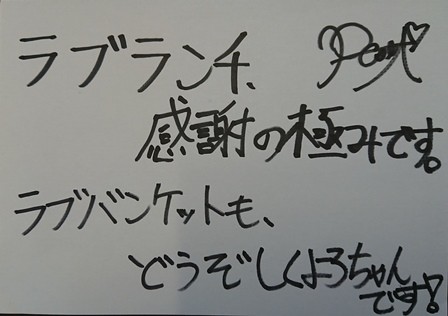 ラブランチ、
感謝の極みです。
ラブバンケットも、
どうぞしくよろちゃん
です!